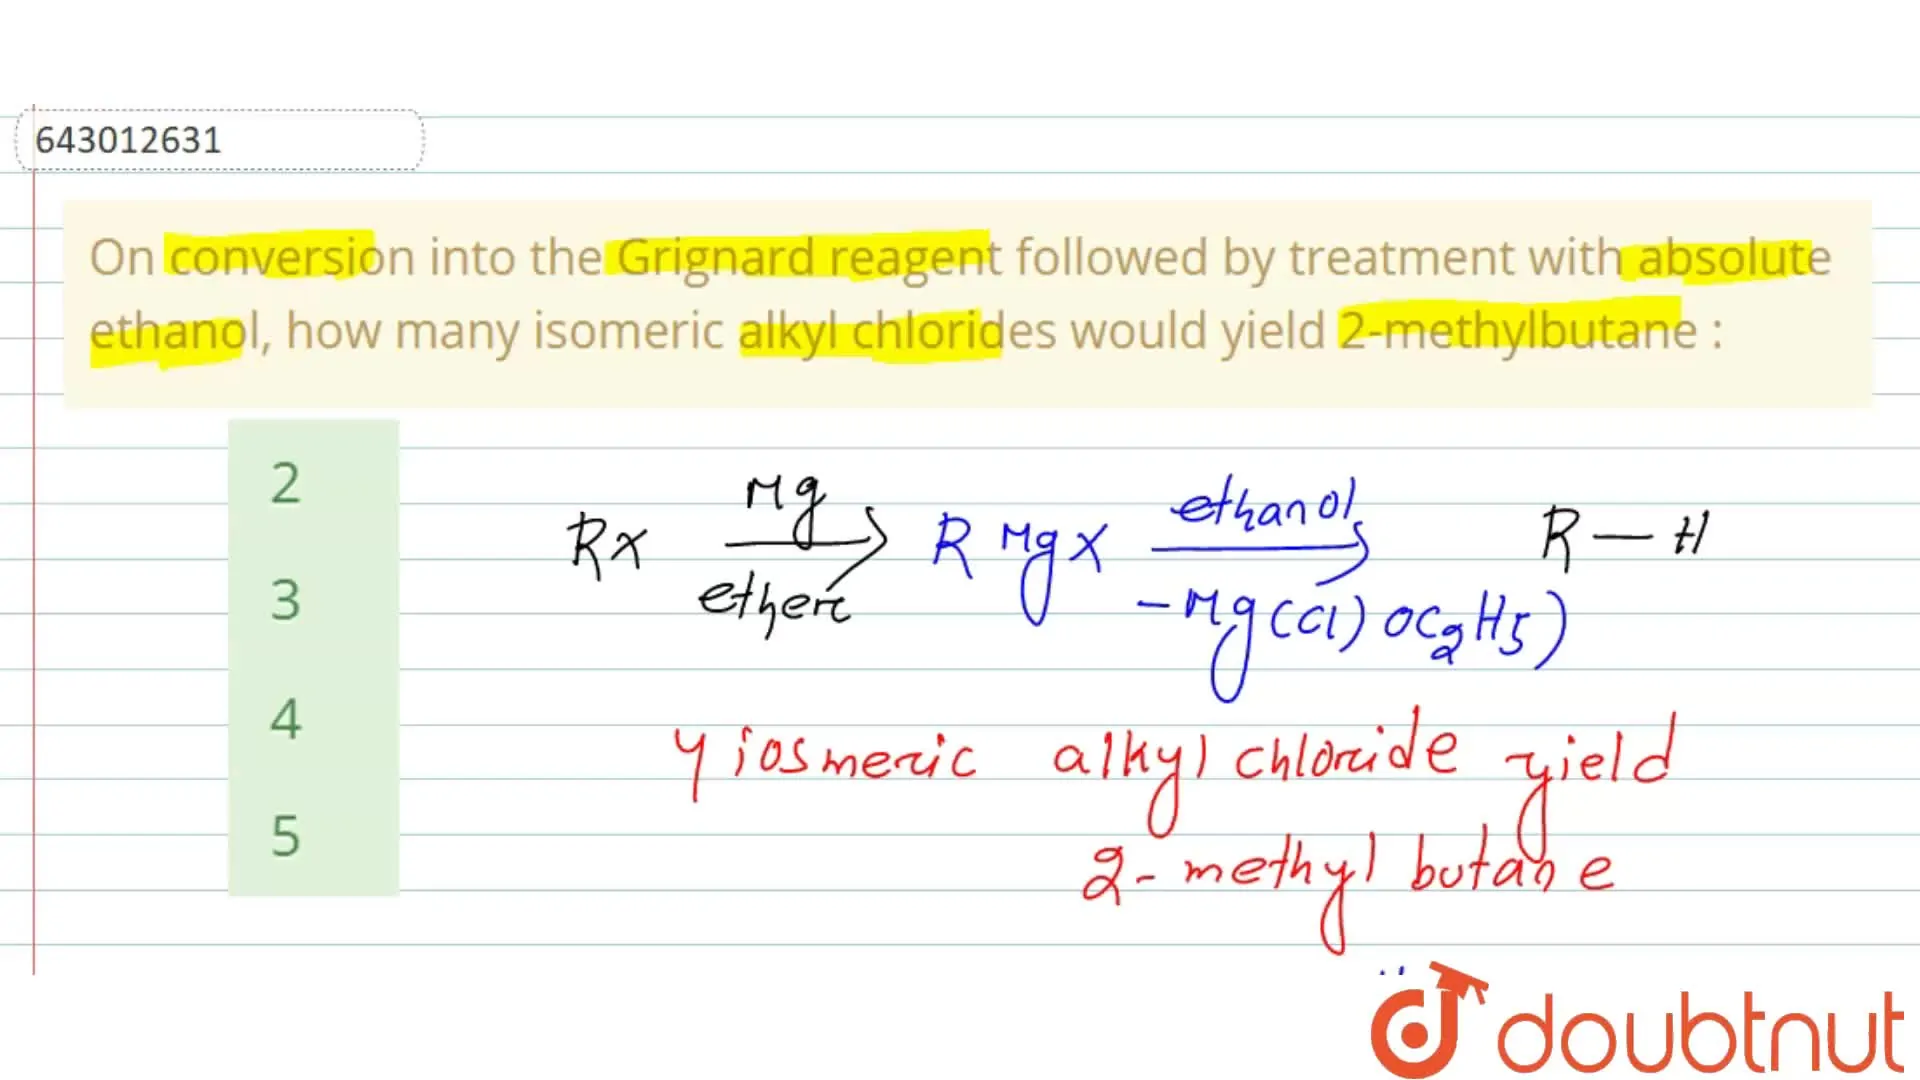 643012631
On conversion into the Grignard reagent followed by treatment with absolute
ethanol, how many isomeric alkyl chlorides would yield 2-methylbutane :
2
3
4
5
Rx Mg ether R Mg X ethanol -Mg(Cl) OC2H5) R-H
4 iosmeric alkyl chloride yield
2-methyl butane
doubtnut